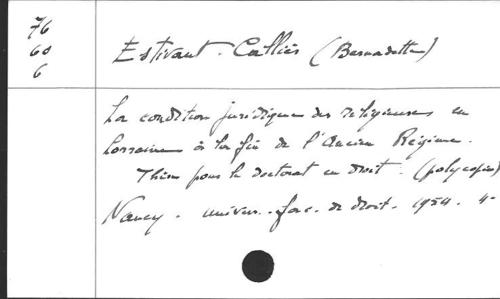 76
60
6
Estivant-Calliès (Bernadette)
La condition juridique des religieuses en
Lorraine à la fin de l'Ancien Régime.
Thèse pour le doctorat en droit. (polycopiée)
Nancy. univers. fac. de droit. 1954. 4°